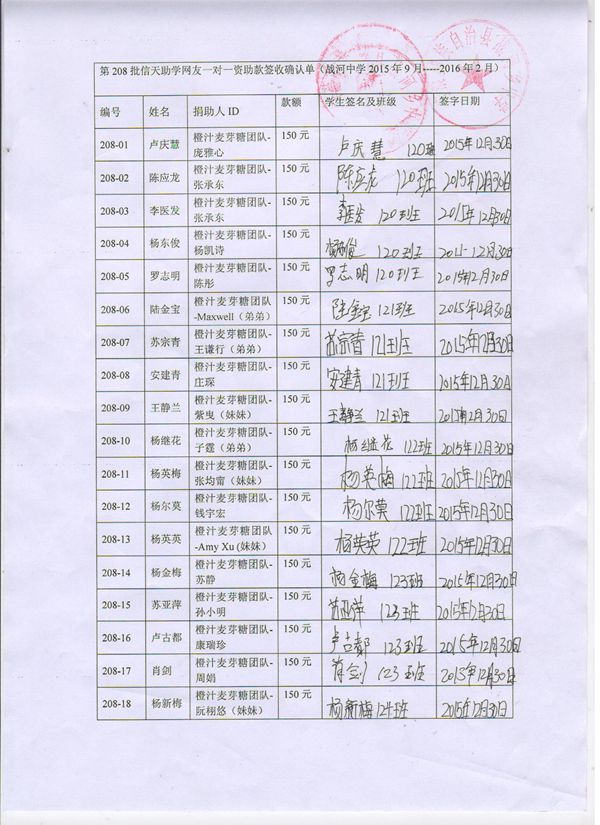 第 208 批信天助学网友一对一资助款签收确认单（战河中学 2015 年 9 月-----2016 年 2 月）
编号 姓名 捐助人 ID 款额 学生签名及班级 签字日期
208-01 卢庆慧 橙汁麦芽糖团队- 150 元 卢庆慧 120班 2015年12月30日
庞雅心
208-02 陈应龙 橙汁麦芽糖团队- 150 元 陈应龙 120班 2015年12月30日
张承东
208-03 李医发 橙汁麦芽糖团队- 150 元 李医发 120班 2015年12月30日
张承东
208-04 杨东俊 橙汁麦芽糖团队- 150 元 120班 12月30日
杨凯诗
208-05 罗志明 橙汁麦芽糖团队- 150 元 罗志明 120班 2015年12月30日
陈彤
208-06 陆金宝 橙汁麦芽糖团队 150 元 陆金宝 121班 2015年12月30日
-Maxwell（弟弟）
208-07 苏宗青 橙汁麦芽糖团队- 150 元 苏宗青 121班 2015年12月30日
王谦行（弟弟）
208-08 安建青 橙汁麦芽糖团队- 150 元 安建青 121班 2015年12月30日
庄琛
208-09 王静兰 橙汁麦芽糖团队- 150 元 王静兰 121班 2015年12月30日
紫曳（妹妹）
208-10 杨继花 橙汁麦芽糖团队- 150 元 杨继花 122班 2015年12月30日
子霆（弟弟）
208-11 杨英梅 橙汁麦芽糖团队- 150 元 杨英梅 122班 2015年12月30日
张均甯（妹妹）
208-12 杨尔莫 橙汁麦芽糖团队- 150 元 杨尔莫 122班 2015年12月30日
钱宇宏
208-13 杨英英 橙汁麦芽糖团队 150 元 杨英英 122班 2015年12月30日
-Amy Xu (妹妹）
208-14 杨金梅 橙汁麦芽糖团队- 150 元 杨金梅 123班 2015年12月30日
苏静
208-15 苏亚萍 橙汁麦芽糖团队- 150 元 苏亚萍 123班 2015年12月30日
孙小明
208-16 卢古都 橙汁麦芽糖团队- 150 元 卢古都 123班 2015年12月30日
康瑞珍
208-17 肖剑 橙汁麦芽糖团队- 150 元 肖剑 123班 2015年12月30日
周娟
208-18 杨新梅 橙汁麦芽糖团队- 150 元 杨新梅 124班 2015年12月30日
阮栩悠（妹妹）